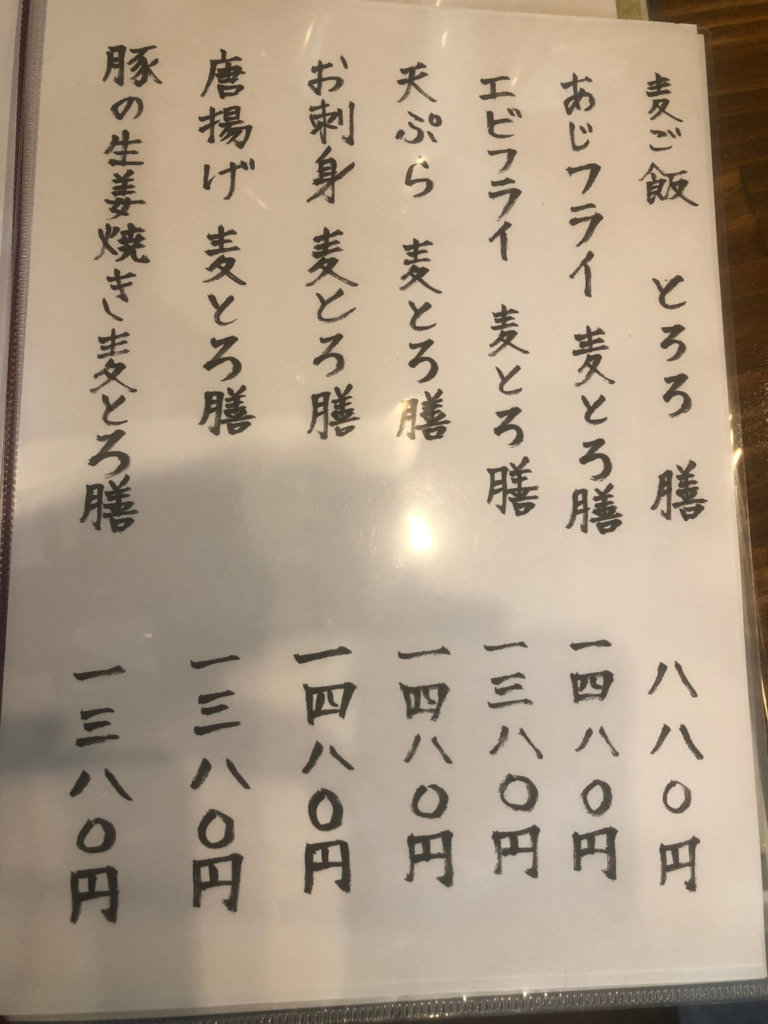 麦ご飯 とろろ 膳 八八〇円
あじフライ 麦とろ膳 一四八〇円
エビフライ 麦とろ膳 一三八〇円
天ぷら 麦とろ膳 一四八〇円
お刺身 麦とろ膳 一四八〇円
唐揚げ 麦とろ膳 一三八〇円
豚の生姜焼き麦とろ膳 一三八〇円